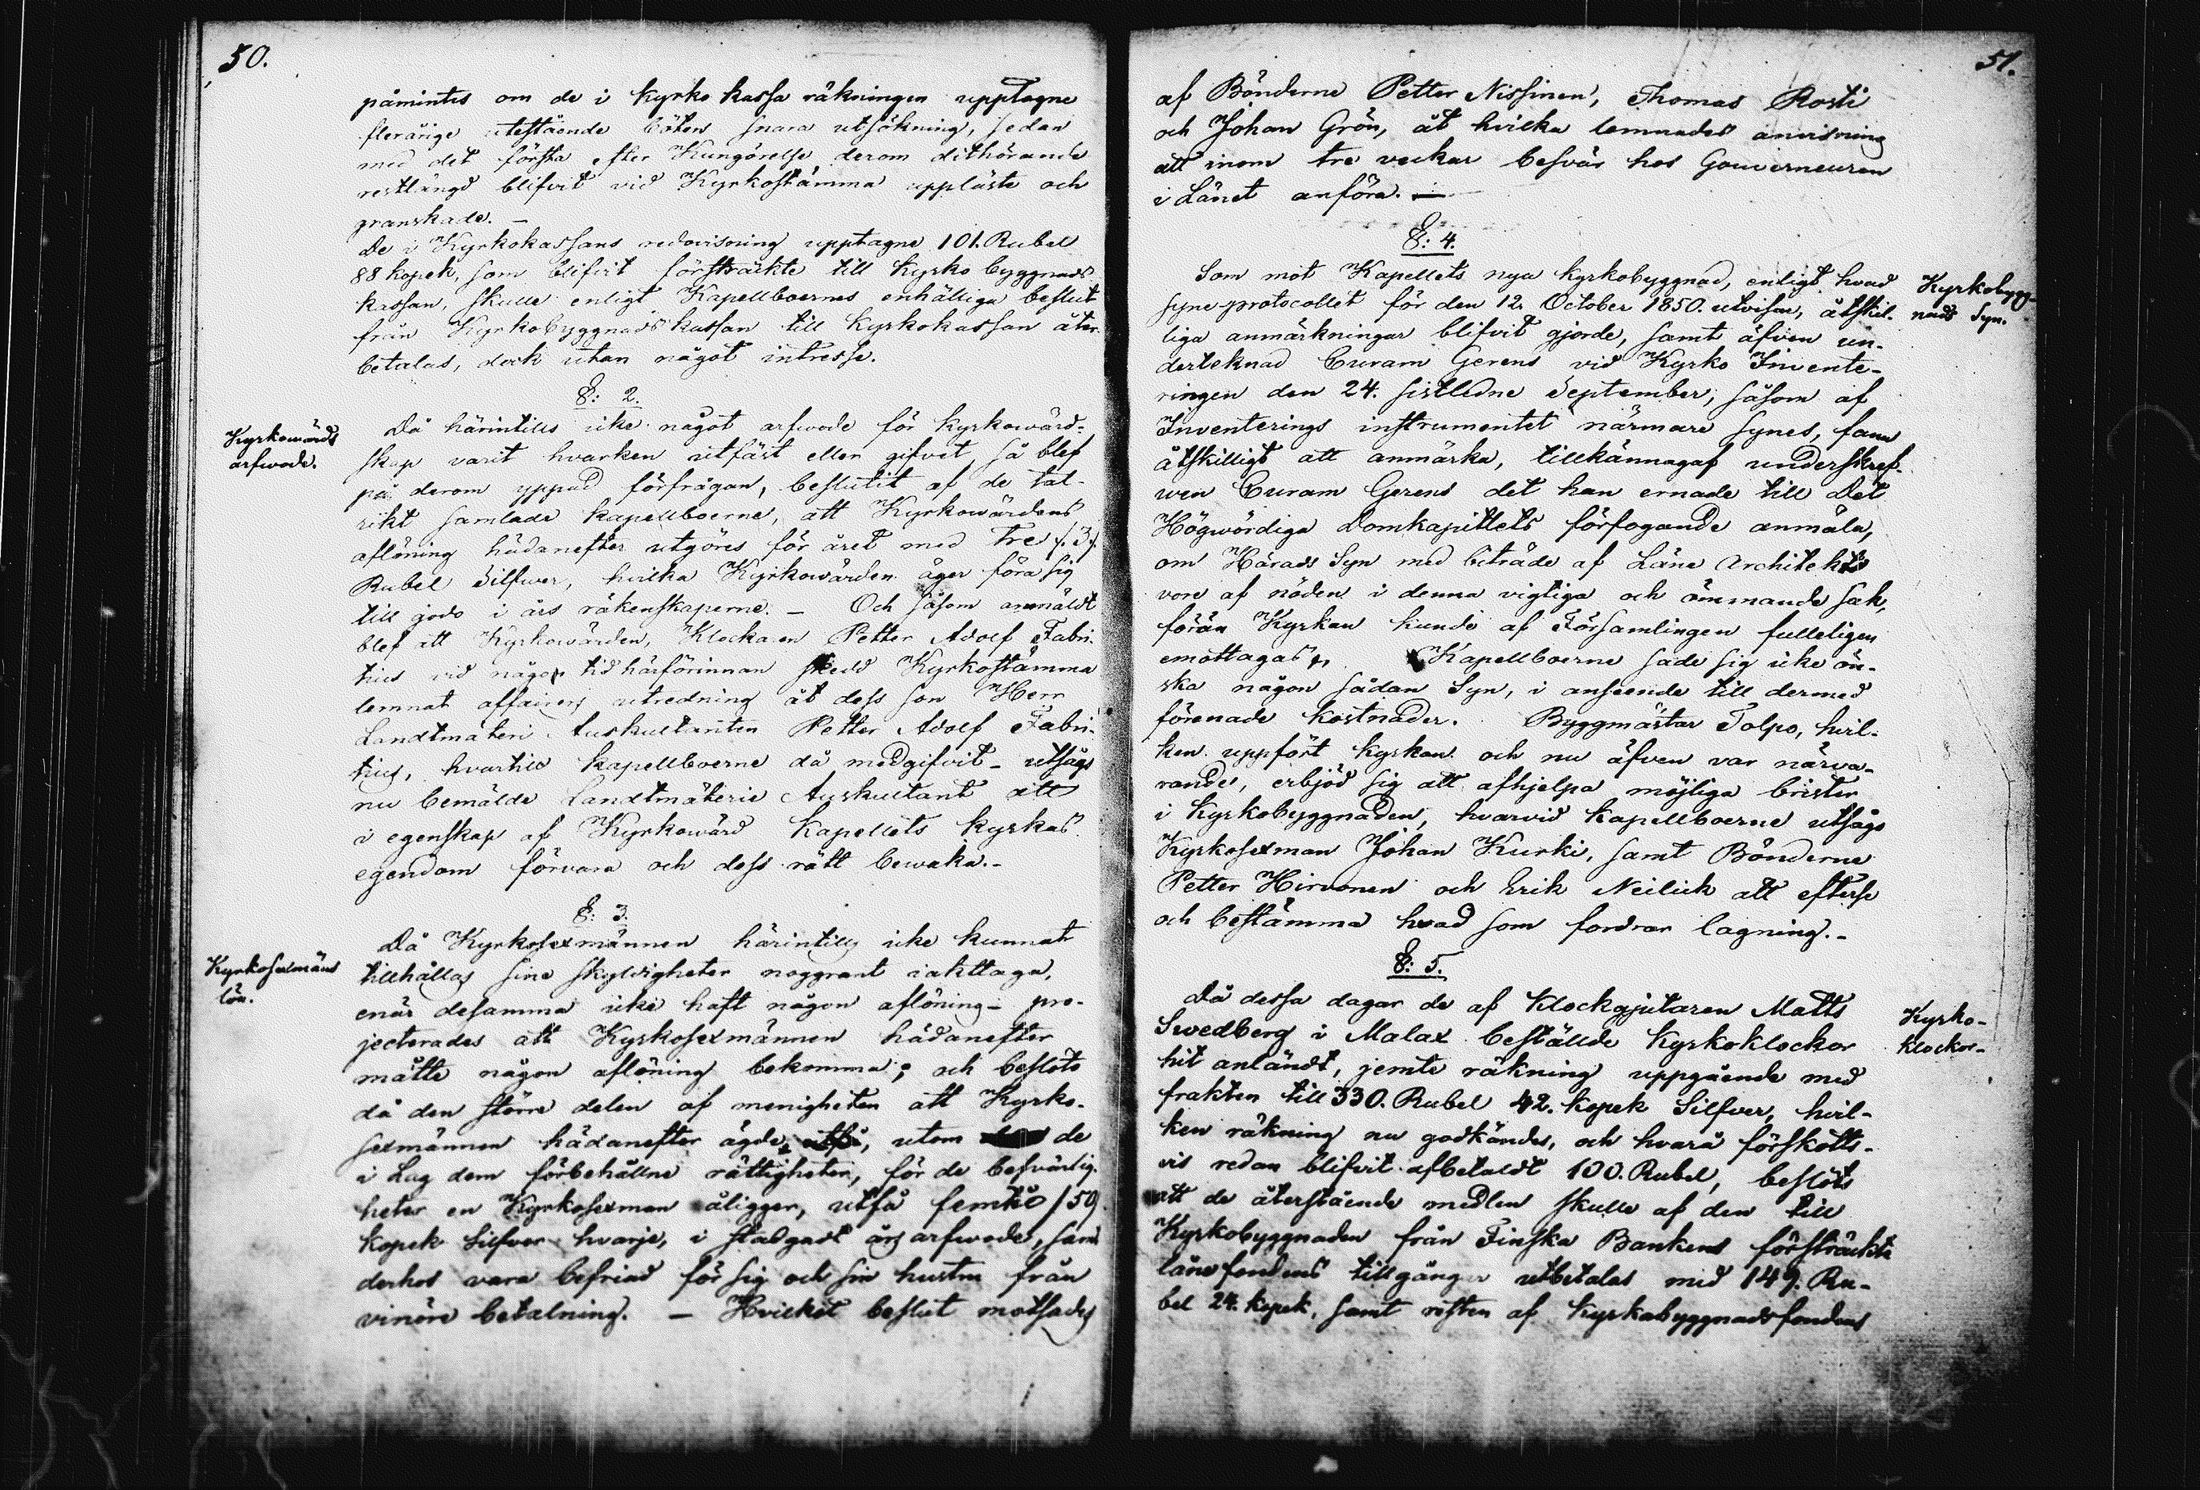 50.
påmintes om de i Kyrko kassa räkningen upptagne
flerårige utestående böters snara utsökning, sedan
med det första efter Kungörelse derom dithörande
restlängd blifvit vid Kyrkostämma uppläste och
granskade. –
De i Kyrkokassans redovisning upptagne 101. Rubel
88 kopek, som blifvit försträckte till Kyrko byggnads
kassan, skulle enligt Kapellboernes enhälliga beslut
från Kyrkobyggnads kassan till Kyrkokassan åter
betalas, dock utan något intresse.
§: 2.
Kyrkowärds
arfwode.
Då härintills icke något arfwode för Kyrkowärd-
skap varit hvarken utfäst eller gifvet, så blef
på derom yppad förfrågan, beslutit af de tal-
rikt samlade kapellboerne, att Kyrkowärdens
aflöning hädanefter utgöres för året med Tre /: 3 /.
Rubel Silfwer, hvilka Kyrkowärden äger föra sig
till godo i års räkenskaperne. – Och såsom anmäldt
blef att Kyrkowärden, Klockaren Petter Adolf Fabri-
tius vid någon tid härförinnan skedd Kyrkostämma
lemnat affairens utredning åt dess son Herr
Landtmäteri Auskultanten Petter Adolf Fabri-
tius, hvartill kapellboerne då medgifvit – utsågs
nu bemälde Landtmäterie Auskultant att
i egenskap af Kyrkowärd Kapellets kyrkas
egendom förvara och dess rätt bewaka. –
§: 3.
Kyrkosexmäns
lön.
Då Kyrkosexmännen härintills icke kunnat
tillhållas sine skyldigheter noggrant iakttaga,
enär desamma icke haft någon aflöning – pro-
jecterades att Kyrkosexmännen hädanefter
måtte någon aflöning bekomma; och beslöts
då den större delen af menigheten att Kyrko-
sexmännen hädanefter ägde, utfå, utom de
i Lag dem förbehållne rättigheter, för de besvärlig-
heter en Kyrkosexman åligger, utfå femtio /50/
kopek Silfver hvarje, i stadgadt års arfwode, samt
derhos vara befriad för sig och sin hustru från
vinöre betalning. – Hvilket beslut motsades
51.
af Bönderne Petter Nissinen, Thomas Rosti
och Johan Grön, åt hvilka lemnades anvisning
att inom tre veckar besvär hos Gouverneuren
i Länet anföra. –
§: 4.
Kyrkobygg-
nads Syn.
Som mot Kapellets nya kyrkobyggnad, enligt hvad
syne protocollet för den 12. October 1850. utvisar, åtskil-
liga anmärkningar blifvit gjorde, samt äfven un-
dertecknad Curam Gerens vid Kyrko Invente-
ringen den 24. sistledne September, såsom af
Inventerings instrumentet närmare synes, fann
åtskilligt att anmärka, tillkännagaf underskref-
wen Curam Gerens det han ernade till Det
Högwördiga Domkapitlets förfogande anmäla,
om Härads Syn med biträde af Läne Architekt
vore af nöden i denna vigtiga och ömmande sak,
förän Kyrkan kunde af Församlingen fulleligen
emottagas. Kapellboerne sade sig icke ön-
ska någon sådan Syn, i anseende till dermed
förenade kostnader. Byggmästar Tolpo, hvil-
ken uppfört kyrkan och nu äfven var närva-
rande, erbjöd sig att afhjelpa möjliga brister
i Kyrkobyggnaden, hvarvid kapellboerne utsågo
Kyrkosexman Johan Kurki, samt Bönderne
Petter Hirvonen och Erik Neilick att efterse
och bestämma hvad som fordrar lagning. –
§: 5.
Kyrko-
klockor –
Då dessa dagar de af Klockgjutaren Matts
Swedberg i Malax beställde Kyrkoklockor
hit anländt, jemte räkning uppgående med
frakten till 330. Rubel 42. kopek Silfver, hvil-
ken räkning nu godkändes, och hvarå förskotts-
vis redan blifvit afbetaldt 100. Rubel, beslöts
att de återstående medlen skulle af den till
Kyrkobyggnaden från Finska Bankens försträckte
lånefondens tillgångar utbetalas med 149. Ru-
bel 24. kopek, samt resten af Kyrkobyggnadsfondens